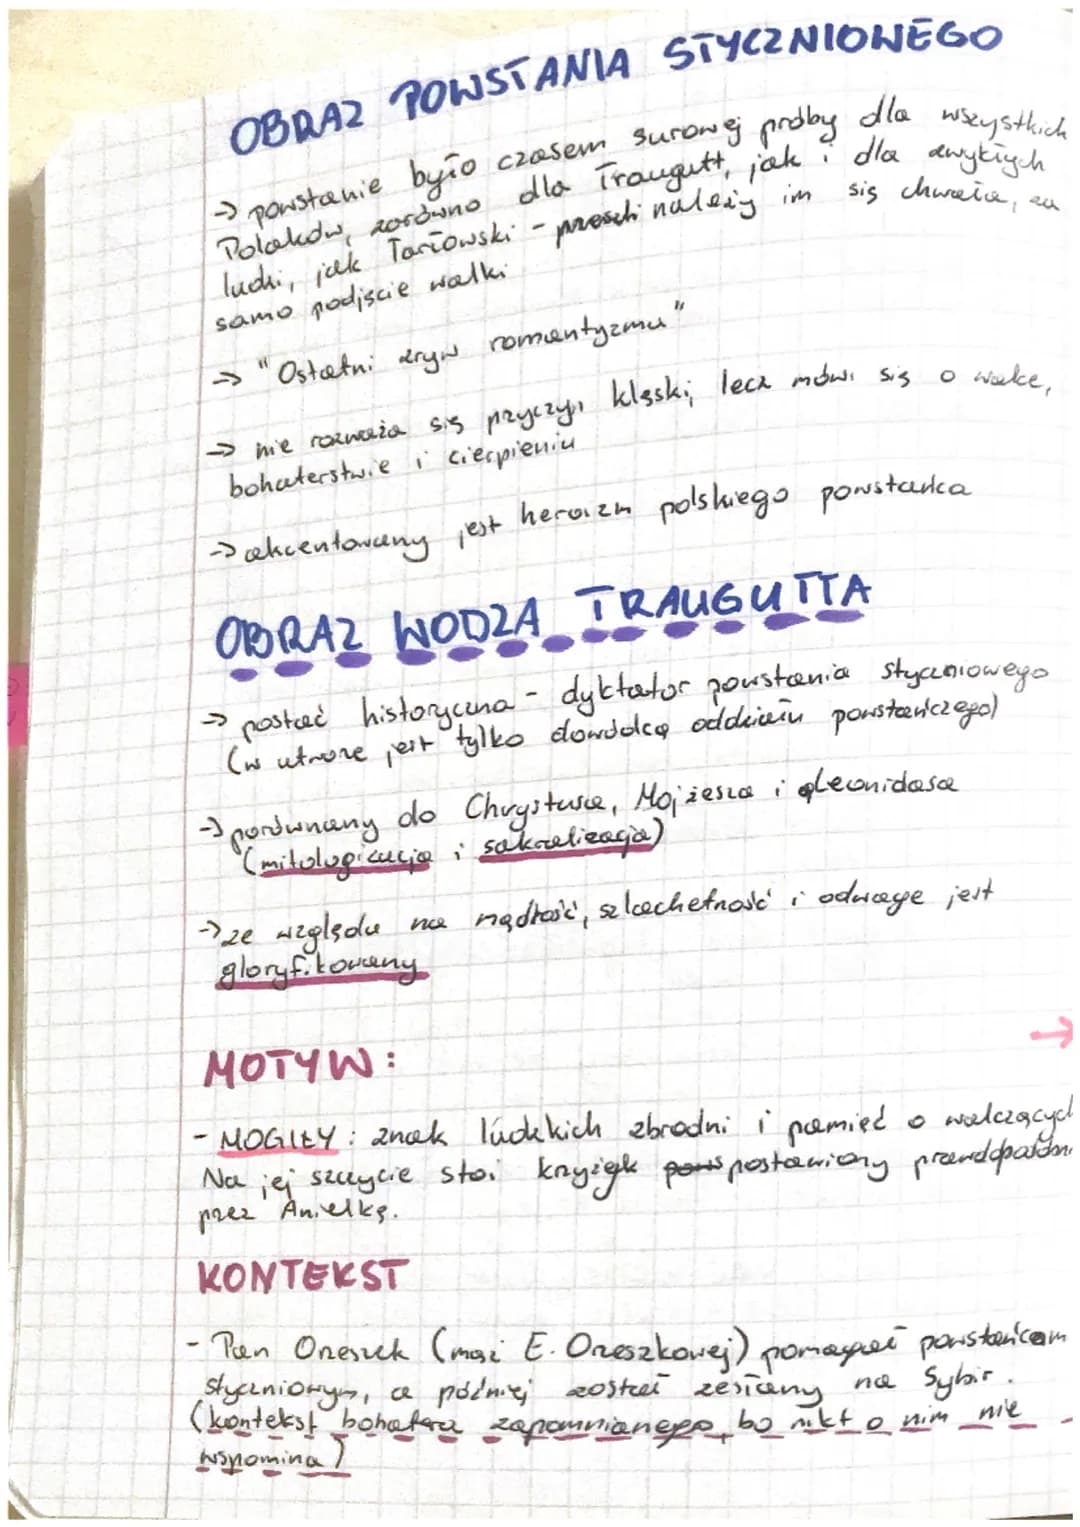 OBRAZ POWSTANIA STYCZNIOWEGO
-> powstanie było czasem surowej próby dla wszystkich
Polaków, zarówno dla Traugutt, jak i dla zwykłych
ludzi, jak Tarłowski - należy im się chwała, za
samo podjęcie walki
-> "Ostatni zryw romantyzmu"
-> nie rozważa się przyczyn klęski, lecz mówi się o walce,
bohaterstwie i cierpieniu
-> akcentowany jest heroizm polskiego powstańca
OBRAZ WODZA TRAUGUTTA
-> postać historyczna - dyktator powstania styczniowego
(w utworze jest tylko dowódcą oddziału powstańczego)
-> porównany do Chrystusa, Mojżesza i Leonidasa
(mitologizacja i sakralizacja)
-> ze względu na mądrość, szlachetność i odwagę jest
gloryfikowany
MOTYW:
- MOGIŁY: znak ludzkich zbrodni i pamięć o walczących
Na jej szczycie stoi krzyżyk postawiony
przez Anielkę.
KONTEKST
- Pan Orzeszek (mąż E. Orzeszkowej) pomagał powstańcom
styczniowym, a później został zesłany na Sybir.
(kontekst bohatera zapomnianego, bo nikt o nim nie
wspomina)